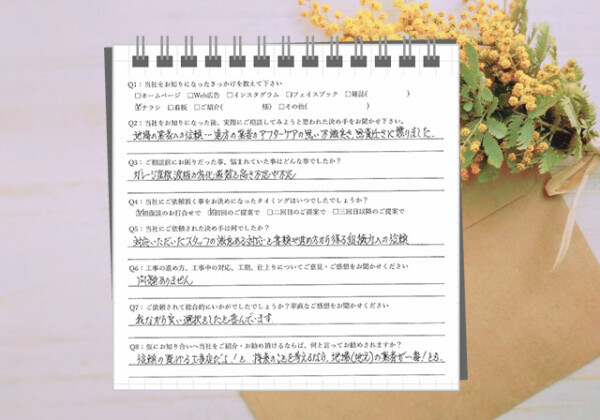 Q1：当社をお知りになったきっかけを教えて下さい
□ホームページ □Web広告 □インスタグラム □フェイスブック □雑誌( )
☑チラシ □看板 □ご紹介( 様) □その他( )
Q2：当社をお知りになった後、実際にご相談してみようと思われた決め手をお聞かせ下さい。
地場の業者への信頼…遠方の業者のアフターケアの悪い不満足さ、無責任さに懲りました。
Q3：ご相談前にお困りだった事、悩まれていた事はどんな事でしたか？
ガレージ屋根波板の劣化 枚数と高さ不足や不足
Q4：当社にご依頼頂く事をお決めになったタイミングはいつでしたでしょうか？
☑初面談のお打合せで ☑初回のご提案で □二回目のご提案で □三回目以降のご提案で
Q5：当社にご依頼された決め手は何でしたか？
対応いただいたスタッフの誠意ある対応と
Q6：工事の進め方、工事中の対応、工期、仕上りについてご意見・ご感想をお聞かせください
問題ありません
Q7：ご依頼されて総合的にいかがでしたでしょうか？率直なご感想をお聞かせください
我ながら良い選択をしたと喜んでいます
Q8：仮にお知り合いへ当社をご紹介・お勧め頂けるならば、何と言ってお勧めされますか？
信頼の置ける工事店だよ！と 将来のことを考えるなら、地場(地元)の業者が一番！とね。